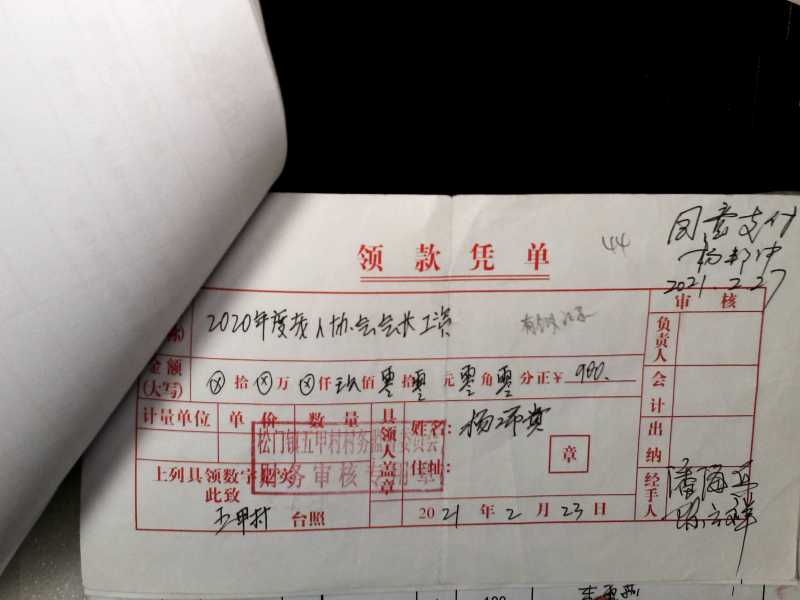 44
同意支付
2021.2.27
领款凭单
2020年度老人协会会长工资
金额(大写) ⊗拾⊗万⊗仟玖佰零拾零元零角零分正¥900.
审核
负责人
会计
出纳
经手人
计量单位 单价 数量
具领人盖章
姓名:
住址:
章
松门镇五甲村村务监督委员会
财务审核专用章
上列具领数字属实
此致
五甲村 台照
2021年2月23日